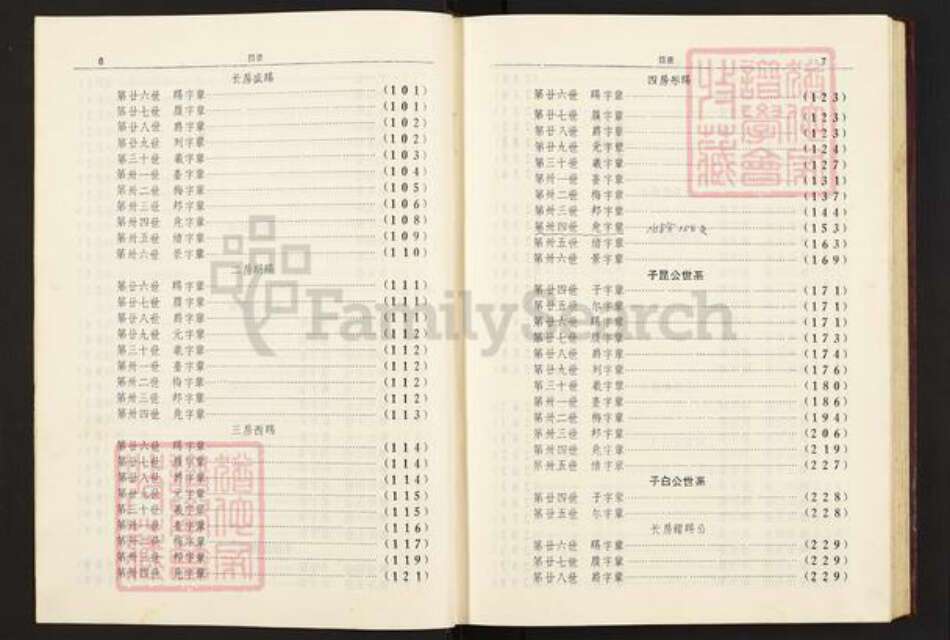 6
目录
长房晟赐
第廿六世 赐字辈 (101)
第廿七世 履字辈 (101)
第廿八世 爵字辈 (102)
第廿九世 列字辈 (102)
第三十世 羲字辈 (103)
第卅一世 臺字辈 (104)
第卅二世 梅字辈 (105)
第卅三世 邦字辈 (106)
第卅四世 字辈 (108)
第卅五世 绪字辈 (109)
第卅六世 景字辈 (110)
二房 赐
第廿六世 赐字辈 (111)
第廿七世 履字辈 (111)
第廿八世 爵字辈 (111)
第廿九世 元字辈 (112)
第三十世 羲字辈 (112)
第卅一世 臺字辈 (112)
第卅二世 梅字辈 (112)
第卅三世 邦字辈 (112)
第卅四世 字辈 (113)
三房西赐
第廿六世 赐字辈 (114)
第廿七世 履字辈 (114)
第廿八世 爵字辈 (114)
第廿九世 元字辈 (115)
第三十世 羲字辈 (115)
第卅一世 臺字辈 (116)
第卅二世 梅字辈 (117)
第卅三世 邦字辈 (119)
第卅四世 字辈 (121)
目录
7
四房彤赐
第廿六世 赐字辈 (123)
第廿七世 履字辈 (123)
第廿八世 爵字辈 (123)
第廿九世 元字辈 (124)
第三十世 羲字辈 (127)
第卅一世 臺字辈 (131)
第卅二世 梅字辈 (137)
第卅三世 邦字辈 (144)
第卅四世 字辈 (153)
第卅五世 绪字辈 (163)
第卅六世 景字辈 (169)
子昆公世系
第廿四世 子字辈 (171)
第廿五世 尔字辈 (171)
第廿六世 赐字辈 (171)
第廿七世 履字辈 (173)
第廿八世 爵字辈 (174)
第廿九世 列字辈 (176)
第三十世 羲字辈 (180)
第卅一世 臺字辈 (186)
第卅二世 梅字辈 (194)
第卅三世 邦字辈 (206)
第卅四世 字辈 (219)
第卅五世 绪字辈 (227)
子白公世系
第廿四世 子字辈 (228)
第廿五世 尔字辈 (228)
长房 赐公
第廿六世 赐字辈 (229)
第廿七世 履字辈 (229)
第廿八世 爵字辈 (229)
FamilySearch